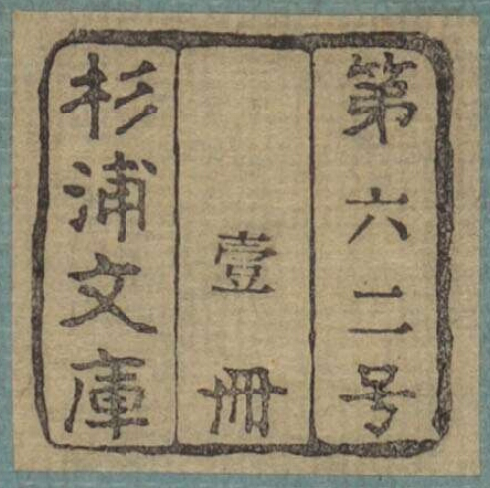 第六二号
壹冊
杉浦文庫